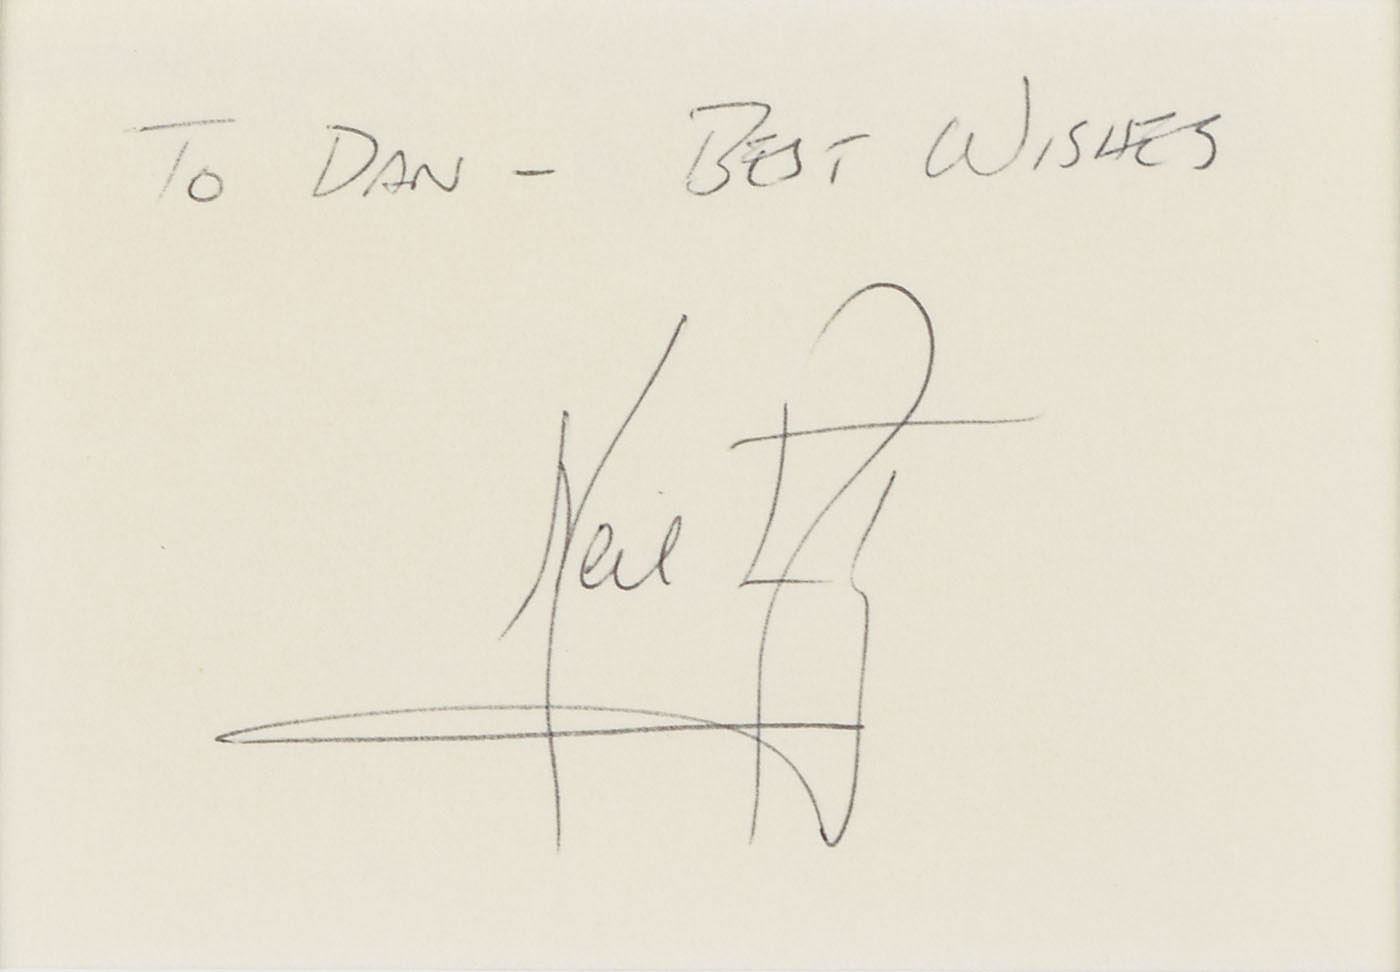 To DAN - BEST WISHES
Neil